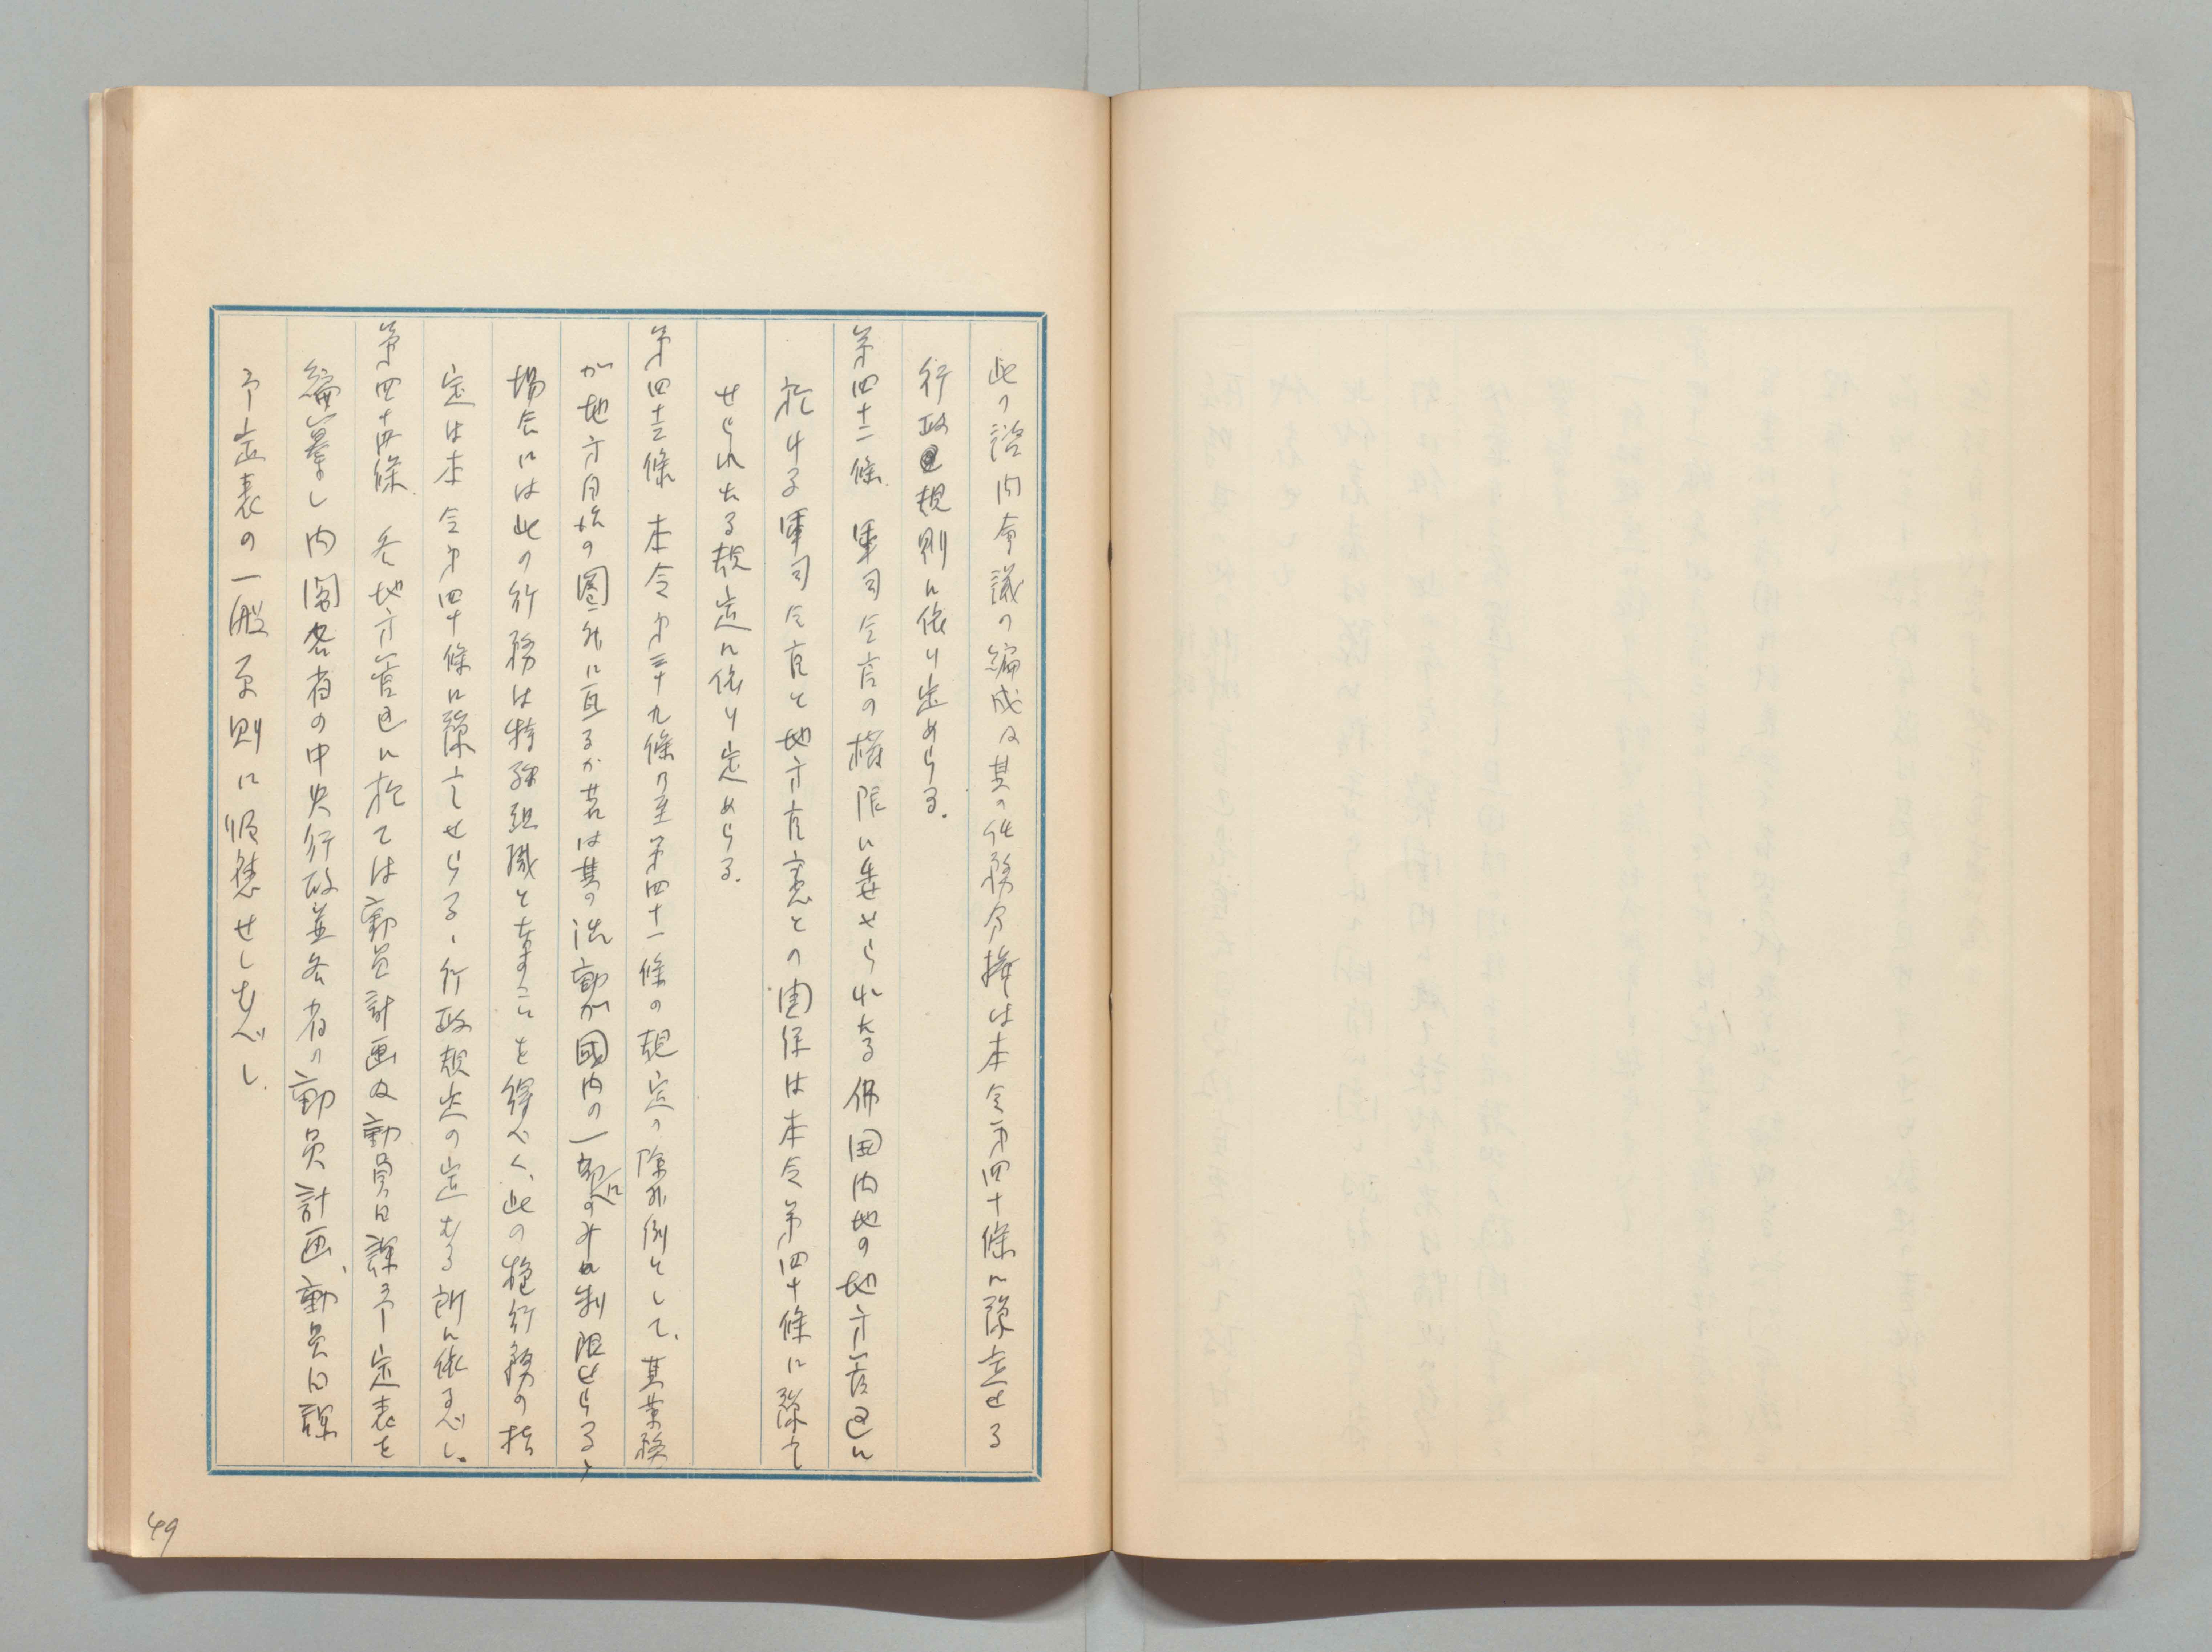 此の諮問会議の編成及其の任務分擔は本令第四十條に豫定せる
行政規則に依り定めらる.
第四十二條 軍司令官の権限に委せられたる佛国内地の地方管区に
於ける軍司令官と地方官憲との関係は本令第四十條に豫定
せられたる規定に依り定めらる.
第四十三條 本令第三十九條乃至第四十一條の規定の除外例として、其業務
が地方自治の圏外に亘るか若は其の活動が國内の一部にのみ制限せらるゝ
場合には此の行務は特殊組織と存すことを得べく、此の種行務の指
定は本令第四十條に豫定せらる、行政規定の定むる所に依るべし.
第四十四條 各地方管区に於ては動員計画及動員日課予定表を
編纂し内閣各省の中央行政並各省の動員計画、動員日課
予定表の一般原則に順應せしむべし.
49